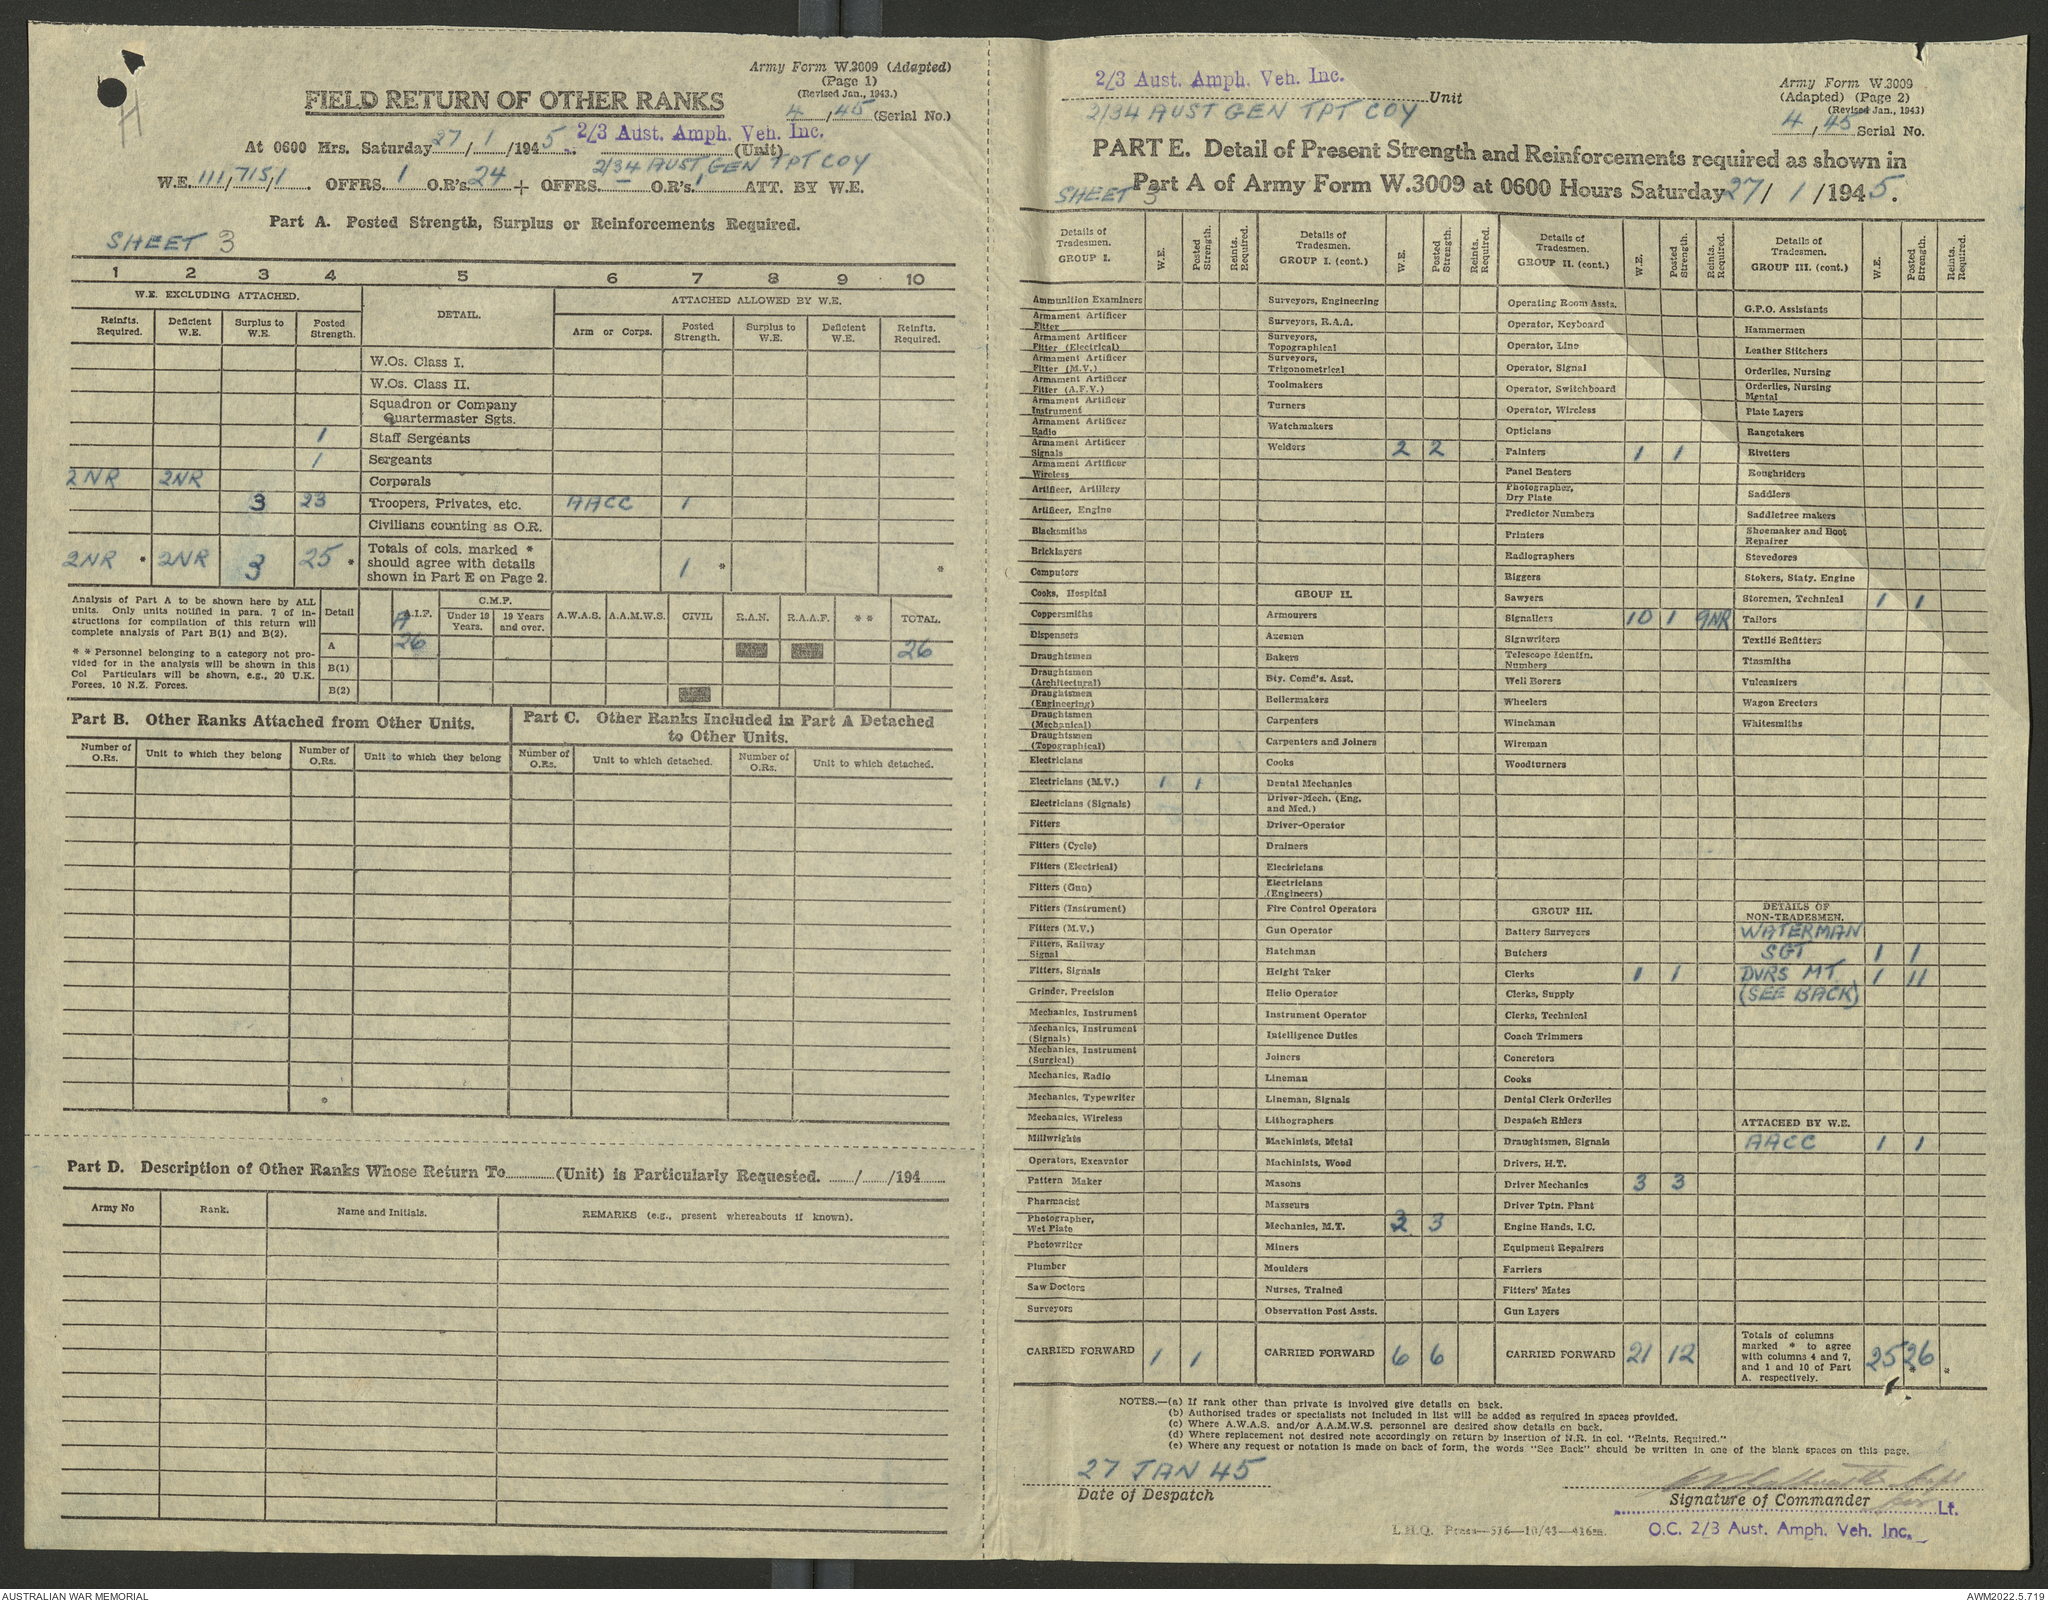 Army Form W.3009 (Adapted)
(Page 1)
(Revised Jan., 1943.)
4/45 (Serial No.)
FIELD RETURN OF OTHER RANKS
2/3 Aust. Amph. Veh. Inc.
At 0600 Hrs. Saturday 27/1/1945. (Unit)
2/34 AUST GEN TPT COY
W.E. 111/715/1. OFFRS. 1 O.R's. 24 + OFFRS. — O.R's. 1 ATT. BY W.E.
Part A. Posted Strength, Surplus or Reinforcements Required.
SHEET 3
1 2 3 4 5 6 7 8 9 10
W.E. EXCLUDING ATTACHED. DETAIL. ATTACHED ALLOWED BY W.E.
Reinfts. Required. Deficient W.E. Surplus to W.E. Posted Strength. Arm or Corps. Posted Strength. Surplus to W.E. Deficient W.E. Reinfts. Required.
W.Os. Class I.
W.Os. Class II.
Squadron or Company
Quartermaster Sgts.
1 Staff Sergeants
1 Sergeants
2NR 2NR Corporals
3 23 Troopers, Privates, etc. AACC 1
Civilians counting as O.R.
2NR * 2NR 3 25 * Totals of cols. marked * should agree with details shown in Part E on Page 2. 1 * *
Analysis of Part A to be shown here by ALL
units. Only units notified in para. 7 of in-
structions for compilation of this return will
complete analysis of Part B(1) and B(2).
* * Personnel belonging to a category not pro-
vided for in the analysis will be shown in this
Col Particulars will be shown, e.g., 20 U.K.
Forces, 10 N.Z. Forces.
Detail A.I.F. C.M.F. Under 19 Years. 19 Years and over. A.W.A.S. A.A.M.W.S. CIVIL R.A.N. R.A.A.F. * * TOTAL.
A 26 26
B(1)
B(2)
Part B. Other Ranks Attached from Other Units.
Number of O.Rs. Unit to which they belong Number of O.Rs. Unit to which they belong
*
Part C. Other Ranks Included in Part A Detached
to Other Units.
Number of O.Rs. Unit to which detached. Number of O.Rs. Unit to which detached.
Part D. Description of Other Ranks Whose Return To (Unit) is Particularly Requested. / /194
Army No Rank. Name and Initials. REMARKS (e.g., present whereabouts if known).
2/3 Aust. Amph. Veh. Inc.
Unit
2/34 AUST GEN TPT COY
Army Form W.3009
(Adapted) (Page 2)
(Revised Jan., 1943)
4/45 Serial No.
PART E. Detail of Present Strength and Reinforcements required as shown in
Part A of Army Form W.3009 at 0600 Hours Saturday 27/1/1945.
SHEET 3
Details of Tradesmen. GROUP I. W.E. Posted Strength. Reints. Required.
Ammunition Examiners
Armament Artificer Fitter
Armament Artificer Fitter (Electrical)
Armament Artificer Fitter (M.V.)
Armament Artificer Fitter (A.F.V.)
Armament Artificer Instrument
Armament Artificer Radio
Armament Artificer Signals
Armament Artificer Wireless
Artificer, Artillery
Artificer, Engine
Blacksmiths
Bricklayers
Computors
Cooks, Hospital
Coppersmiths
Dispensers
Draughtsmen
Draughtsmen (Architectural)
Draughtsmen (Engineering)
Draughtsmen (Mechanical)
Draughtsmen (Topographical)
Electricians
Electricians (M.V.) 1 1
Electricians (Signals)
Fitters
Fitters (Cycle)
Fitters (Electrical)
Fitters (Gun)
Fitters (Instrument)
Fitters (M.V.)
Fitters, Railway Signal
Fitters, Signals
Grinder, Precision
Mechanics, Instrument
Mechanics, Instrument (Signals)
Mechanics, Instrument (Surgical)
Mechanics, Radio
Mechanics, Typewriter
Mechanics, Wireless
Millwrights
Operators, Excavator
Pattern Maker
Pharmacist
Photographer, Wet Plate
Photowriter
Plumber
Saw Doctors
Surveyors
CARRIED FORWARD 1 1
Details of Tradesmen. GROUP I. (cont.) W.E. Posted Strength. Reints. Required.
Surveyors, Engineering
Surveyors, R.A.A.
Surveyors, Topographical
Surveyors, Trigonometrical
Toolmakers
Turners
Watchmakers
Welders 2 2
GROUP II.
Armourers
Axemen
Bakers
Bty. Comd's. Asst.
Boilermakers
Carpenters
Carpenters and Joiners
Cooks
Dental Mechanics
Driver-Mech. (Eng. and Med.)
Driver-Operator
Drainers
Electricians
Electricians (Engineers)
Fire Control Operators
Gun Operator
Hatchman
Height Taker
Helio Operator
Instrument Operator
Intelligence Duties
Joiners
Lineman
Lineman, Signals
Lithographers
Machinists, Metal
Machinists, Wood
Masons
Masseurs
Mechanics, M.T. 3 3
Miners
Moulders
Nurses, Trained
Observation Post Assts.
CARRIED FORWARD 6 6
Details of Tradesmen. GROUP II. (cont.) W.E. Posted Strength. Reints. Required.
Operating Room Assts.
Operator, Keyboard
Operator, Line
Operator, Signal
Operator, Switchboard
Operator, Wireless
Opticians
Painters 1 1
Panel Beaters
Photographer, Dry Plate
Predictor Numbers
Printers
Radiographers
Riggers
Sawyers
Signallers 10 1 9NR
Signwriters
Telescope Identfn. Numbers
Well Borers
Wheelers
Winchman
Wireman
Woodturners
GROUP III.
Battery Surveyors
Butchers
Clerks 1 1
Clerks, Supply
Clerks, Technical
Coach Trimmers
Concretors
Cooks
Dental Clerk Orderlies
Despatch Riders
Draughtsmen, Signals
Drivers, H.T.
Driver Mechanics 3 3
Driver Tptn. Plant
Engine Hands, I.C.
Equipment Repairers
Farriers
Fitters' Mates
Gun Layers
CARRIED FORWARD 21 12
Details of Tradesmen. GROUP III. (cont.) W.E. Posted Strength. Reints. Required.
G.P.O. Assistants
Hammermen
Leather Stitchers
Orderlies, Nursing
Orderlies, Nursing Mental
Plate Layers
Rangetakers
Rivetters
Roughriders
Saddlers
Saddletree makers
Shoemaker and Boot Repairer
Stevedores
Stokers, Staty. Engine
Storemen, Technical 1 1
Tailors
Textile Refitters
Tinsmiths
Vulcanizers
Wagon Erectors
Whitesmiths
DETAILS OF NON-TRADESMEN.
WATERMAN
SGT 1 1
DVRS MT. 1 11
(SEE BACK)
ATTACHED BY W.E.
AACC 1 1
Totals of columns marked * to agree with columns 4 and 7, and 1 and 10 of Part A. respectively. 25 26 * *
NOTES.—(a) If rank other than private is involved give details on back.
(b) Authorised trades or specialists not included in list will be added as required in spaces provided.
(c) Where A.W.A.S. and/or A.A.M.W.S. personnel are desired show details on back.
(d) Where replacement not desired note accordingly on return by insertion of N.R. in col. "Reints. Required."
(e) Where any request or notation is made on back of form, the words "See Back" should be written in one of the blank spaces on this page.
27 JAN 45
Date of Despatch
Signature of Commander
Lt.
O.C. 2/3 Aust. Amph. Veh. Inc.
L.H.Q. Press—576—10/43—416m.
AUSTRALIAN WAR MEMORIAL
AWM2022.5.719